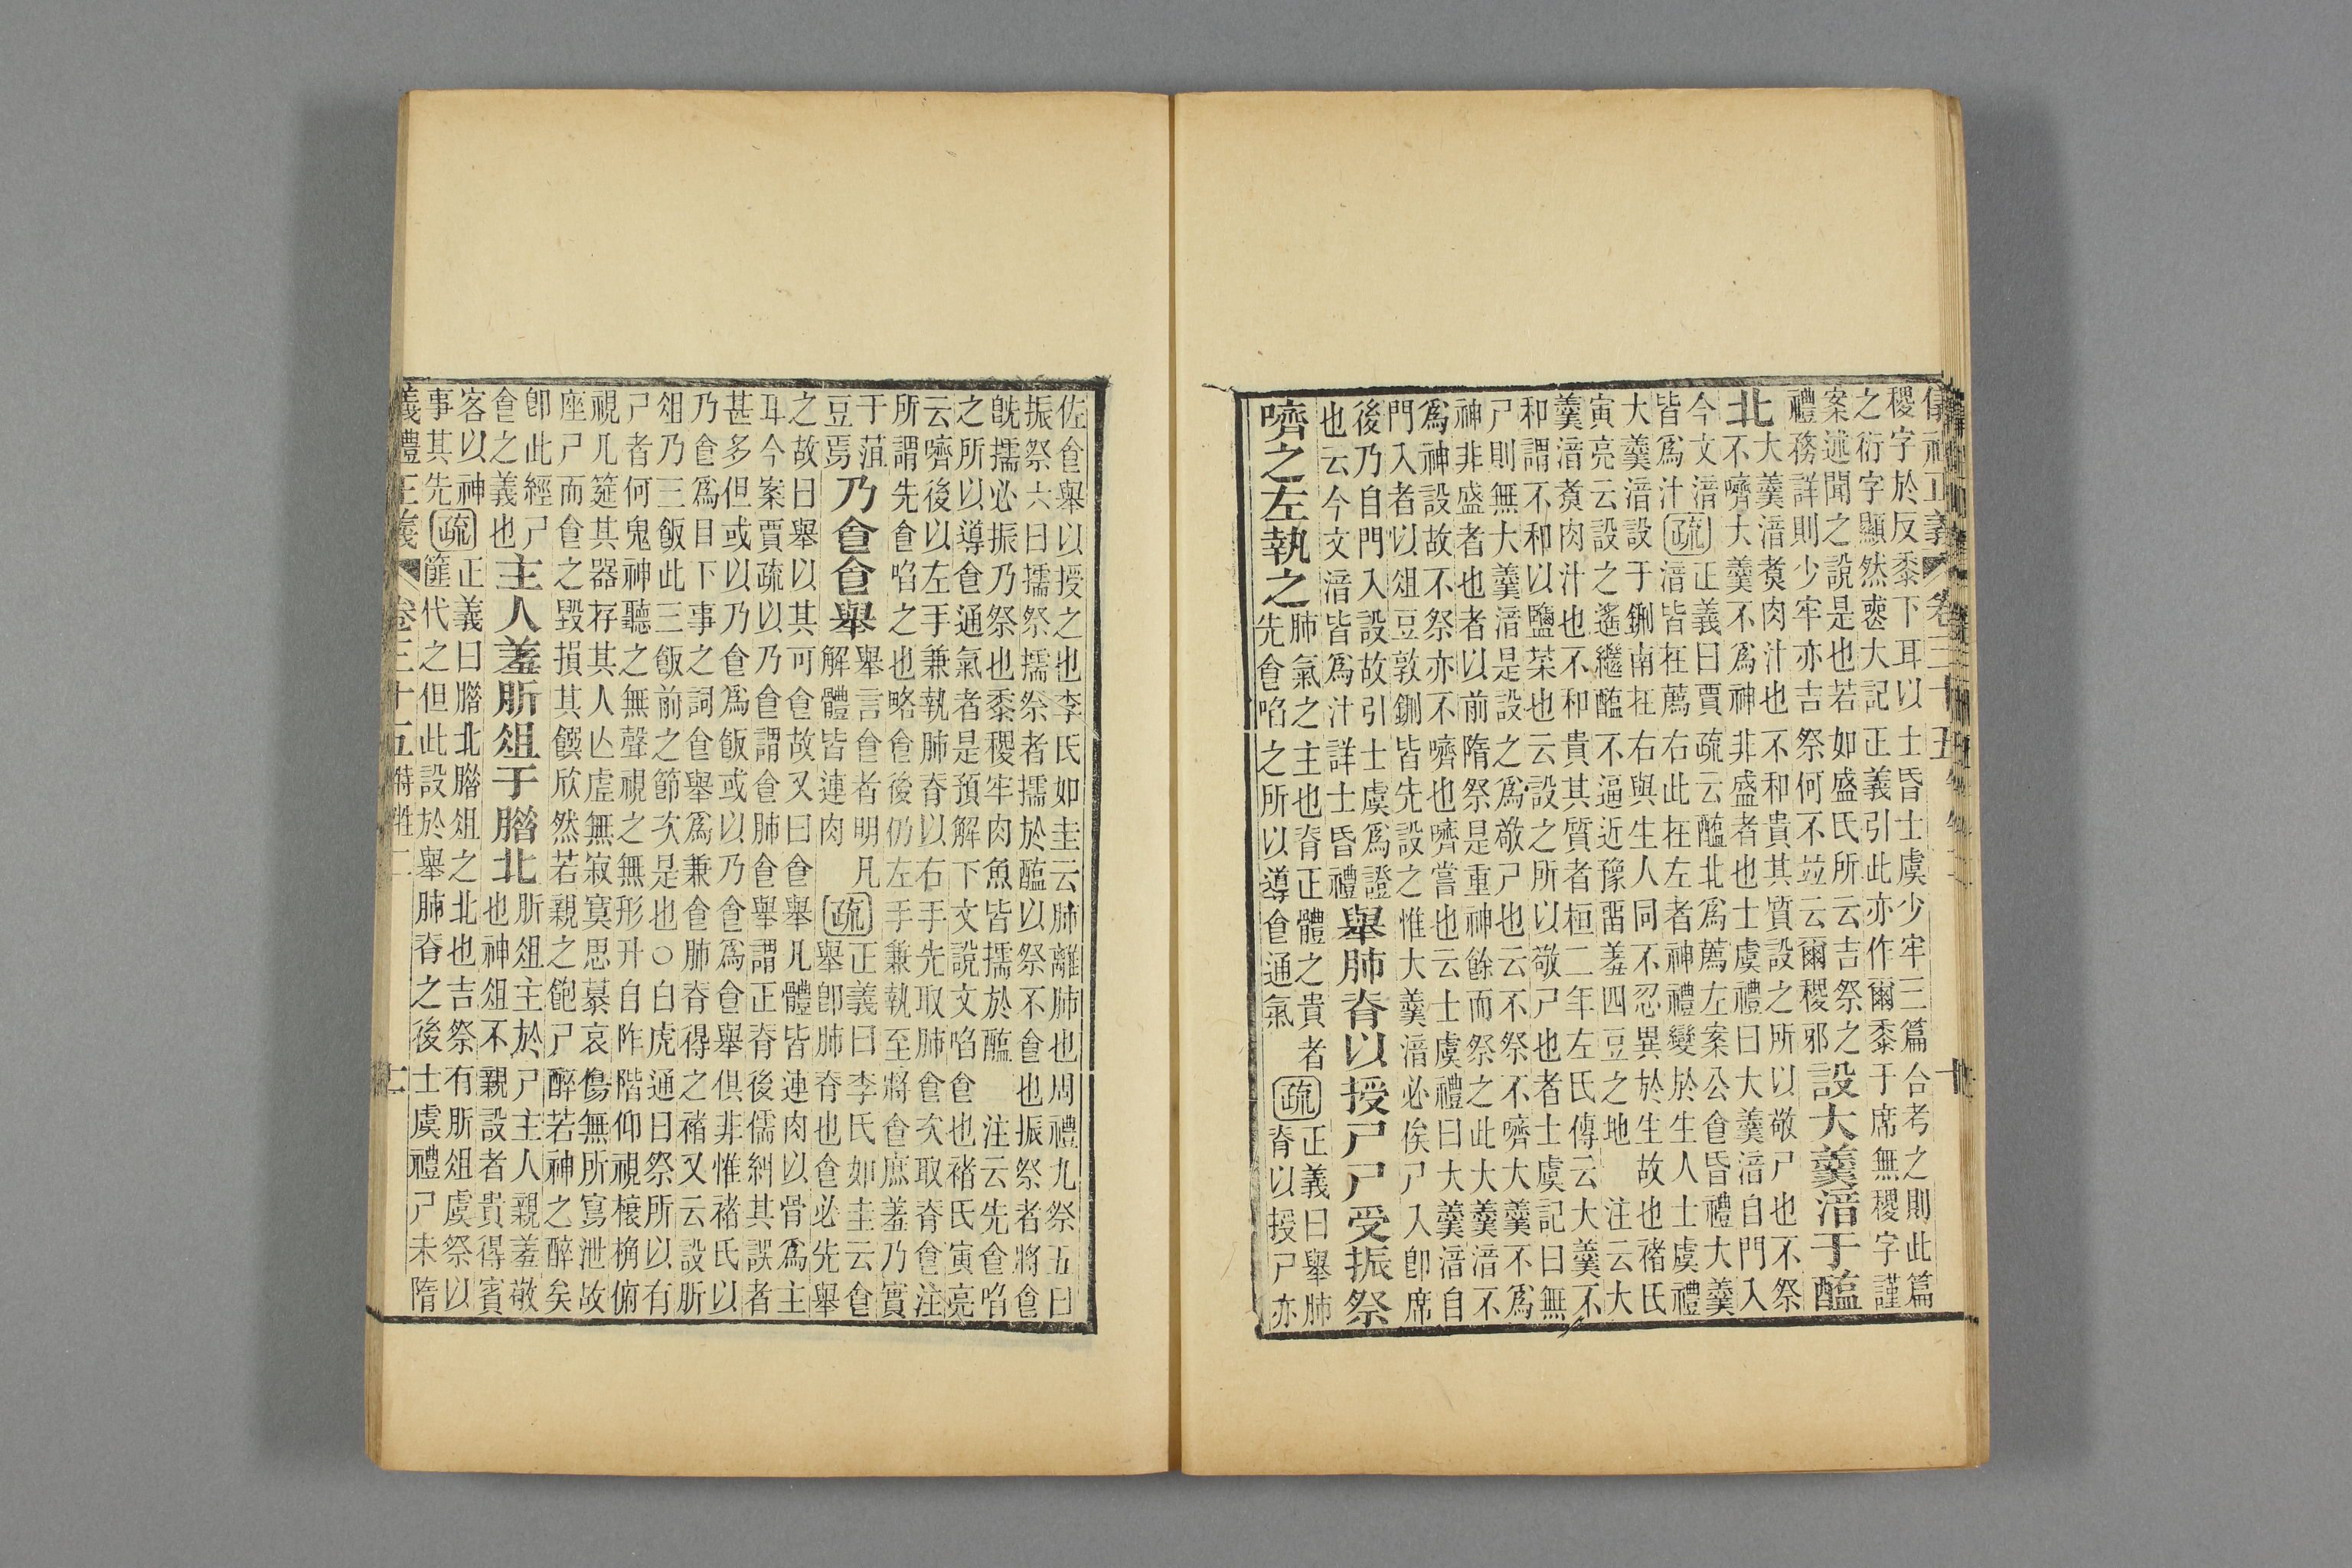 稷字於反黍下耳以士昏士虞少牢三篇合考之則此篇
之衍字顯然遬大記正義引此亦作爾黍于席無稷字謹
案述聞之說是也若如盛氏所云吉祭之
禮務詳則少牢亦吉祭何不竝云爾稷邪
設大羹湆于醢
北
大羹湆煑肉汁也不和貴其質設之所以敬尸也不祭
不嚌大羹不爲神非盛者也士虞禮曰大羹湆自門入
今文湆
皆爲汁
疏
正義曰賈疏云醢北爲薦左案公食昏禮大羹
湆皆在薦右此在左者神禮變於生人士虞禮
大羹湆設于鉶南在右與生人同不忍異於生故也褚氏
寅亮云設之遙繼醢不逼近豫畱羞四豆之地 注云大
羹湆煑肉汁也不和貴其質者桓二年左氏傳云大羹不
和謂不和以鹽菜也云設之所以敬尸也者士虞記曰無
尸則無大羹湆是設之爲敬尸也云不祭不嚌大羹不爲
神非盛者也者以前隋祭是重神餘而祭之此大羹湆不
爲神設故不祭亦不嚌也嚌嘗也云士虞禮曰大羹湆自
門入者以俎豆敦鉶皆先設之惟大羹湆必俟尸入卽席
後乃自門入設故引士虞爲證
也云今文湆皆爲汁詳士昏禮
舉肺脊以授尸尸受振祭
嚌之左執之
肺氣之主也脊正體之貴者
先食啗之所以導食通氣
疏
正義曰舉肺
脊以授尸亦
佐食舉以授之也李氏如圭云肺離肺也周禮九祭五曰
振祭六曰擩祭擩祭者擩於醢以祭不食也振祭者將食
旣擩必振乃祭也黍稷牢肉魚皆擩於醢 注云先食啗
之所以導食通氣者是預解下文說文啗食也褚氏寅亮
云嚌後以左手兼執肺脊以右手先取肺食次取脊食注
所謂先食啗之也略食後仍左手兼執至將食庶羞乃實
于菹
豆焉
乃食食舉
舉言食者明凡
解體皆連肉
疏
正義曰李氏如圭云食
舉卽肺脊也食必先舉
之故曰舉以其可食故又曰食舉凡體皆連肉以骨爲主
耳今案賈疏以乃食謂食肺食舉謂正脊後儒糾其誤者
甚多但或以乃食爲飯或以乃食爲食舉俱非惟褚氏以
乃食爲目下事之詞食舉爲兼食肺脊得之褚又云設肵
俎乃三飯此三飯前之節次是也○白虎通曰祭所以有
尸者何鬼神聽之無聲視之無形升自阼階仰視榱桷俯
視几筵其器存其人亾虛無寂寞思慕哀傷無所寫泄故
座尸而食之毀損其饌欣然若親之飽尸醉若神之醉矣
卽此經尸
食之義也
主人羞肵俎于腊北
肵俎主於尸主人親羞敬
也神俎不親設者貴得賓
客以神
事其先
疏
正義曰腊北腊俎之北也吉祭有肵俎虞祭以
篚代之但此設於舉肺脊之後士虞禮尸未隋
義禮正義 卷三十五